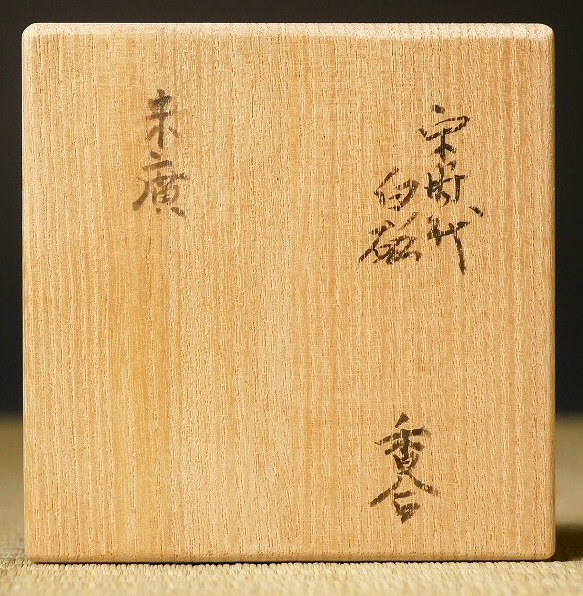 宋時代
白磁
香合
末廣